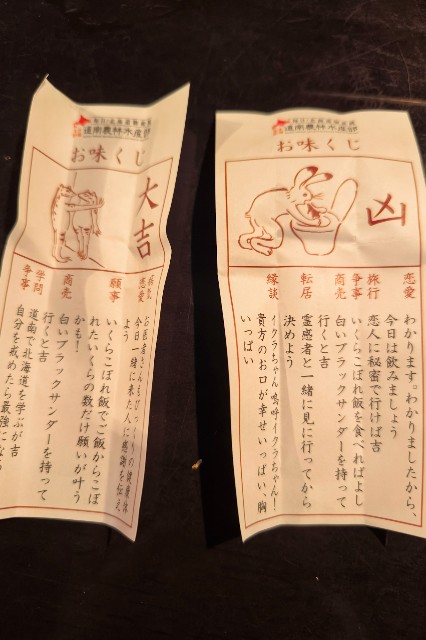 道南農林水産部
お味くじ
大吉
恋愛
今日一緒に来た人に感謝を伝えよう
願事
いくらこぼれ飯でご飯からこぼれたいくらの数だけ願いが叶うかも!
商売
白いブラックサンダーを持って行くと吉
学問
道南で北海道を学ぶが吉
争事
自分を戒めたら最強になる
道南農林水産部
お味くじ
凶
恋愛
わかります。わかりましたから、今日は飲みましょう
旅行
恋人に秘密で行けば吉
争事
いくらこぼれ飯を食べればよし
商売
白いブラックサンダーを持って行くと吉
転居
霊感者と一緒に見に行ってから決めよう
縁談
イクラちゃん嗚呼イクラちゃん!貴方のお口が幸せいっぱい、胸いっぱい